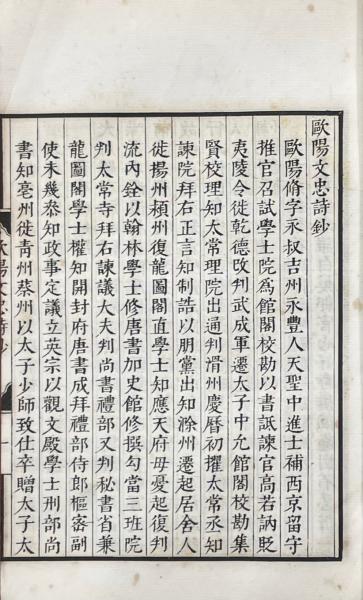 歐陽文忠詩鈔
歐陽脩字永叔吉州永豐人天聖中進士補西京留守
推官召試學士院為館閣校勘以書詆諫官高若訥貶
夷陵令徙乾德改判武成軍遷太子中允館閣校勘集
賢校理知太常理院出通判滑州慶曆初擢太常丞知
諫院拜右正言知制誥以朋黨出知滁州遷起居舍人
徙揚州潁州復龍圖閣直學士知應天府母憂起復判
流內銓以翰林學士修唐書加史館修撰勾當三班院
判太常寺拜右諫議大夫判尚書禮部又判秘書省兼
龍圖閣學士權知開封府唐書成拜禮部侍郎樞密副
使未幾叅知政事定議立英宗以觀文殿學士刑部尚
書知亳州徙青州蔡州以太子少師致仕卒贈太子太
歐陽文忠詩鈔
一